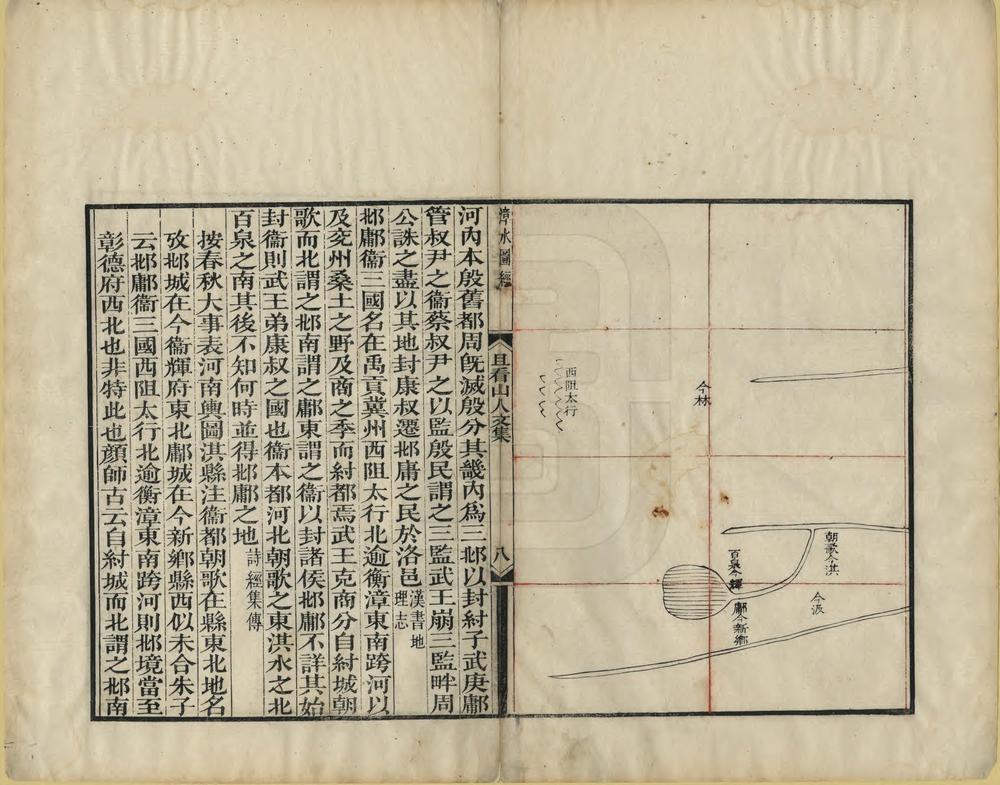 朝歌今淇
今汲
百泉今輝
鄘今新鄉
今林
西阻太行
漳水圖經
且看山人文集
八
河內本殷舊都周旣滅殷分其畿內爲三邶以封紂子武庚鄘
管叔尹之衞蔡叔尹之以監殷民謂之三監武王崩三監畔周
公誅之盡以其地封康叔遷邶庸之民於洛邑漢書地理志
邶鄘衞三國名在禹貢冀州西阻太行北逾衡漳東南跨河以
及兗州桑土之野及商之季而紂都焉武王克商分自紂城朝
歌而北謂之邶南謂之鄘東謂之衞以封諸侯邶鄘不詳其始
封衞則武王弟康叔之國也衞本都河北朝歌之東淇水之北
百泉之南其後不知何時並得邶鄘之地詩經集傳
按春秋大事表河南輿圖淇縣注衞都朝歌在縣東北地名
攷邶城在今衞輝府東北鄘城在今新鄉縣西似未合朱子
云邶鄘衞三國西阻太行北逾衡漳東南跨河則邶境當至
彰德府西北也非特此也顏師古云自紂城而北謂之邶南